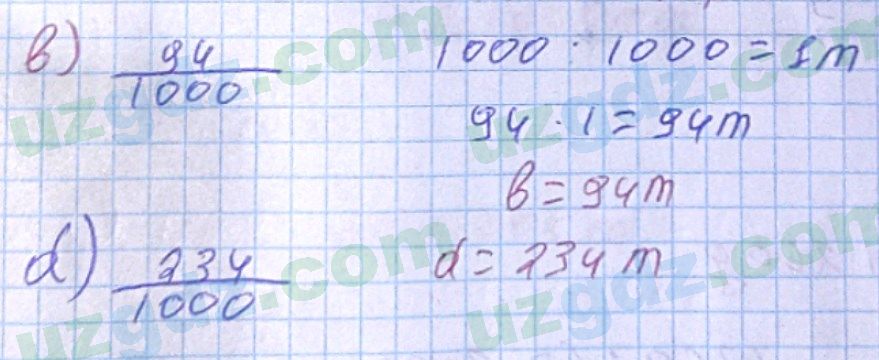 b) 94/1000 1000 : 1000 = 1m
94 · 1 = 94m
b = 94m
d) 234/1000 d = 234m
uzgdz.com
uzgdz.com
uzgdz.com
uzgdz.com